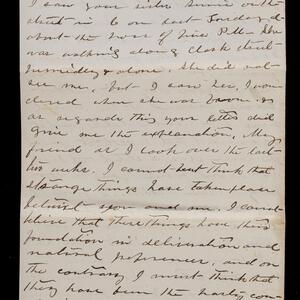 I saw your sister Annie with
about in 6 on last Sunday at
about the hour of nine P.M. She
was walking along Clark Street
and alone. She did not
see me, but I saw her, I won
dered when she was
as regards this your letter did
give me the explanation. My
friend as I look over the last
two weeks. I cannot but think that
strange things have taken place
betwixt you and me. I cannot
believe that these things have their
foundation in deliberation and
natural preference, and on
the contrary I must think that
they have been the hasty con